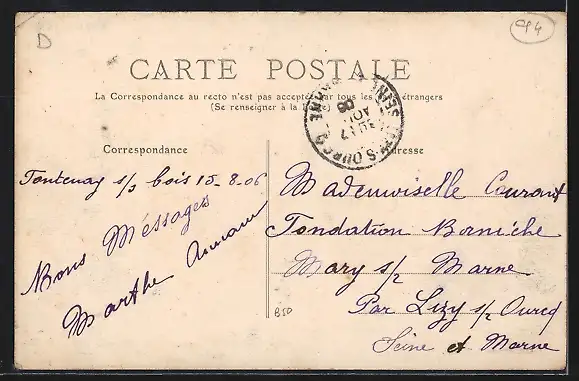 D
94
CARTE POSTALE
La Correspondance au recto n'est pas acceptée par tous les pays étrangers
(Se renseigner à la Poste)
Correspondance
Adresse
Fontenay s/s bois 15-8-06
Bons Messages
Marthe
Mademoiselle Courant
Fondation Borniche
Mary s/ Marne
Par Lizy s/ Ourcq
Seine et Marne
B50